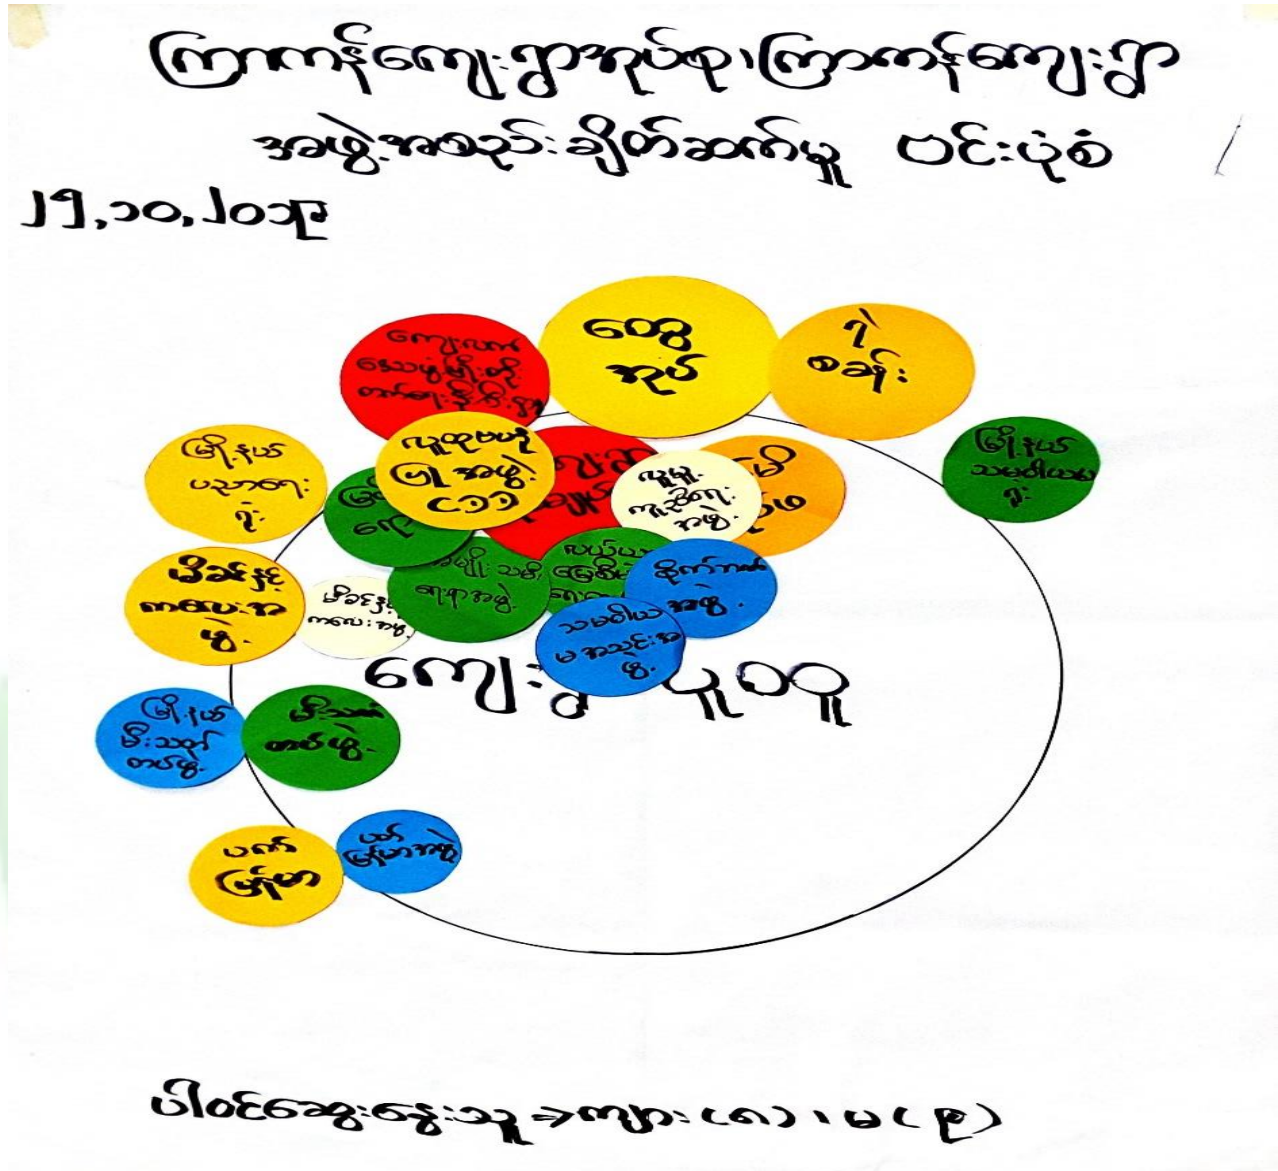 ကြာကန်ကျေးရွာအုပ်စု၊ကြာကန်ကျေးရွာ
အဖွဲ့အစည်းချိတ်ဆက်မှု ဗင်းပုံစံ
၂၅,၁၀,၂၀၁၉
ထွေ
အုပ်
ရဲ
စခန်း
ကျေးလက်
မြို့နယ်
သမဝါယမ
ရုံး
မြို့နယ်
ပညာရေး
ရုံး
လူထုဗဟို
ပြု အဖွဲ့
လူမှု
ကူညီရေး
အဖွဲ့
မိခင်နှင့်
ကလေးအ
ဖွဲ့
မိခင်နှင့်
ကလေးအဖွဲ့
အမျိုးသမီး
ရေးရာအဖွဲ့
စိုက်ဘဏ်
အဖွဲ့
သမဝါယ
မ အသင်းအ
ဖွဲ့
ကျေးရွာ လူထု
မြို့နယ်
မီးသတ်
တပ်ဖွဲ့
မီးသတ်
တပ်ဖွဲ့
ပက်
မြန်မာ
ပက်
မြန်မာအဖွဲ့
ပါဝင်ဆွေးနွေးသူ → ကျား (၈) ၊ မ ( ၉ )